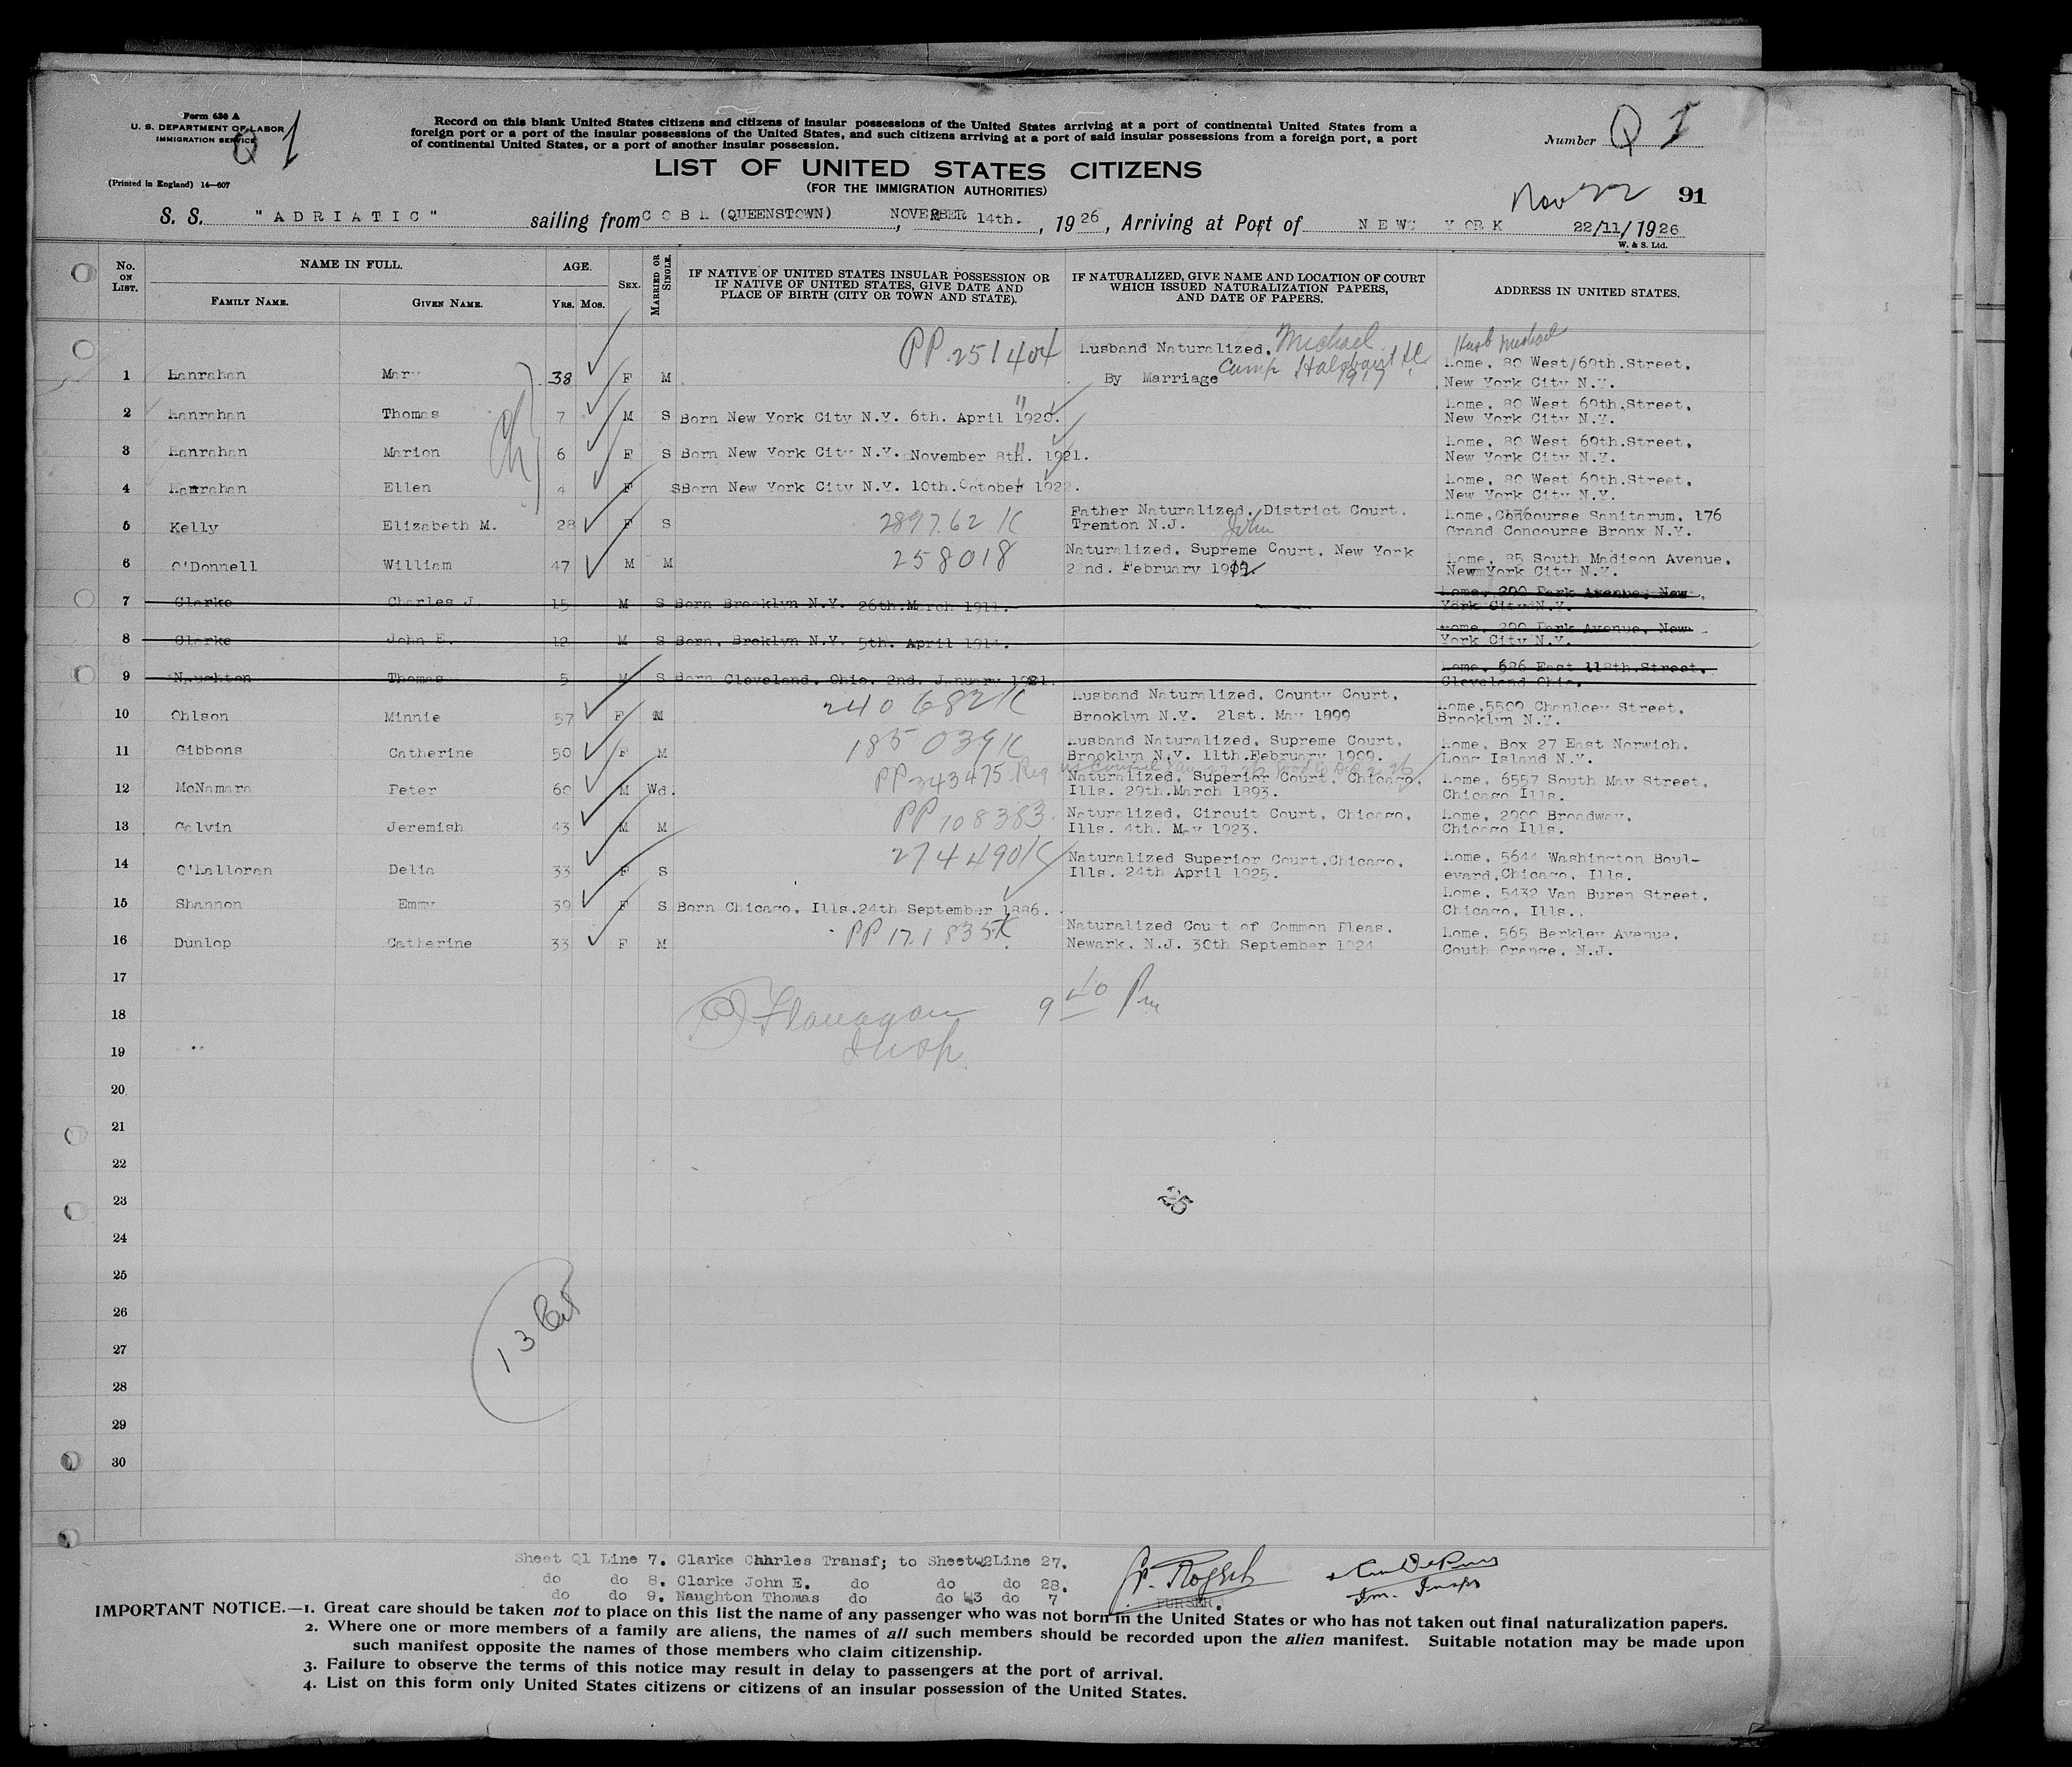 Form 630 A
U. S. DEPARTMENT OF LABOR
IMMIGRATION SERVICE
Q 1
(Printed in England) 14—607
Record on this blank United States citizens and citizens of insular possessions of the United States arriving at a port of continental United States from a
foreign port or a port of the insular possessions of the United States, and such citizens arriving at a port of said insular possessions from a foreign port, a port
of continental United States, or a port of another insular possession.
Number Q I
LIST OF UNITED STATES CITIZENS
(FOR THE IMMIGRATION AUTHORITIES)
Nov 22 91
S. S. "ADRIATIC" sailing from COBH (QUEENSTOWN), NOVEMBER 14th., 1926, Arriving at Port of NEW YORK 22/11/1926
W. & S. Ltd.
No. ON LIST. NAME IN FULL. FAMILY NAME. GIVEN NAME. AGE. YRS. MOS. SEX. MARRIED OR SINGLE.
IF NATIVE OF UNITED STATES INSULAR POSSESSION OR
IF NATIVE OF UNITED STATES, GIVE DATE AND
PLACE OF BIRTH (CITY OR TOWN AND STATE).
IF NATURALIZED, GIVE NAME AND LOCATION OF COURT
WHICH ISSUED NATURALIZATION PAPERS,
AND DATE OF PAPERS.
ADDRESS IN UNITED STATES.
PP 251404 Husband Naturalized. Michael Husb Michael
1 Hanrahan Mary 38 F M By Marriage Camp 1917 Home, 80 West/60th.Street,
New York City N.Y.
2 Hanrahan Thomas 7 M S Born New York City N.Y. 6th. April 1920. Home, 80 West 60th.Street,
New York City N.Y.
3 Hanrahan Marion 6 F S Born New York City N.Y. November 8th. 1921. Home, 80 West 60th.Street,
New York City N.Y.
4 Hanrahan Ellen 4 F S Born New York City N.Y. 10th.October 1922. Home, 80 West 60th.Street,
New York City N.Y.
5 Kelly Elizabeth M. 28 F S 289762 K Father Naturalized, District Court,
Trenton N.J. John Home, Concourse Sanitarum, 176
Grand Concourse Bronx N.Y.
6 O'Donnell William 47 M M 258018 Naturalized, Supreme Court, New York
22nd. February 1912. Home, 85 South Madison Avenue,
New York City N.Y.
7 Clarke Charles J. 15 M S Born Brooklyn N.Y. 26th.March 1911. Home, 290 Park Avenue, New
York City N.Y.
8 Clarke John E. 12 M S Born, Broklyn N.Y. 5th. April 1914. Home, 290 Park Avenue, New
York City N.Y.
9 Naughton Thomas 5 M S Born Cleveland, Ohio. 2nd. January 1921. Home, 686 East 118th.Street,
Cleveland Ohio.
10 Ohlson Minnie 57 F M 240682K Husband Naturalized, County Court,
Brooklyn N.Y. 21st. May 1899 Home, 5509 Street,
Brooklyn N.Y.
11 Gibbons Catherine 50 F M 185039K Husband Naturalized, Supreme Court,
Brooklyn N.Y. 11th.February 1909. Home, Box 27 East Norwich,
Long Island N.Y.
12 McNamara Peter 60 M Wd. PP 343475 Naturalized, Superior Court, Chicago,
Ills. 29th.March 1893. Home, 6557 South May Street,
Chicago Ills.
13 Galvin Jeremiah 43 M M PP 108383 Naturalized, Circuit Court, Chicago,
Ills. 4th. May 1923. Home, 2900 Broadway,
Chicago Ills.
14 O'Halloran Delia 33 F S 274490K Naturalized Superior Court,Chicago,
Ills. 24th April 1925. Home, 5644 Washington Boul-
evard,Chicago, Ills.
15 Shannon Emmy 39 F S Born Chicago, Ills.24th September 1886. Home, 5432 Van Buren Street,
Chicago, Ills..
16 Dunlop Catherine 33 F M PP 171835K Naturalized Court of Common Pleas,
Newark, N.J. 30th September 1924 Home, 565 Berkley Avenue,
South Orange, N.J.
17
18 Flanagan 9 40 Pm
Insp.
19
20
21
22
23 25
24
25
26
27 13 Cit
28
29
30
Sheet Q1 Line 7. Clarke Charles Transf; to Sheet Q2 Line 27.
do do 8. Clarke John E. do do do 28.
do do 9. Naughton Thomas do do Q3 do 7
PURSER.
Im. Insp
IMPORTANT NOTICE.—1. Great care should be taken not to place on this list the name of any passenger who was not born in the United States or who has not taken out final naturalization papers.
2. Where one or more members of a family are aliens, the names of all such members should be recorded upon the alien manifest. Suitable notation may be made upon
such manifest opposite the names of those members who claim citizenship.
3. Failure to observe the terms of this notice may result in delay to passengers at the port of arrival.
4. List on this form only United States citizens or citizens of an insular possession of the United States.